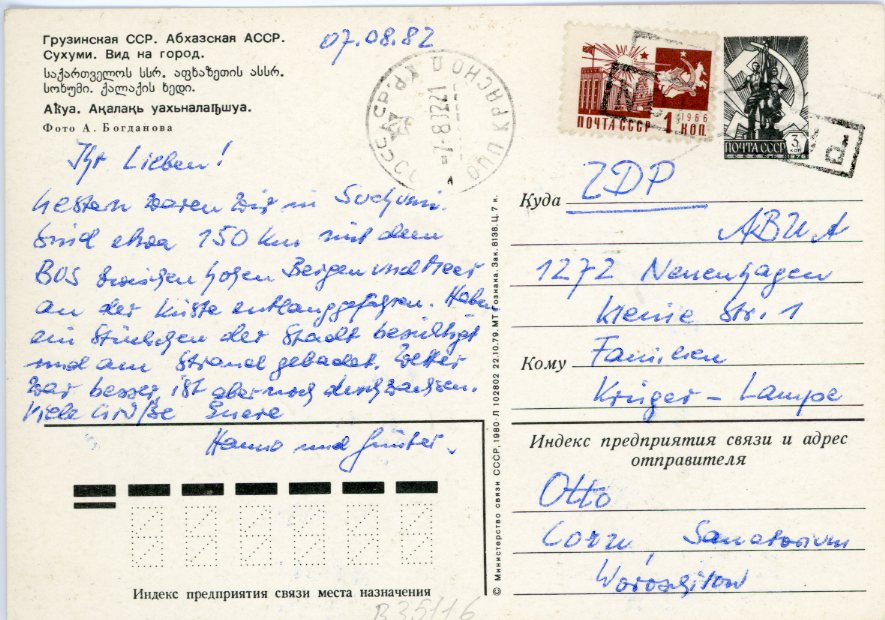 Грузинская ССР. Абхазская АССР.
Сухуми. Вид на город.
საქართველოს სსრ. აფხაზეთის ასსრ.
სოხუმი. ქალაქის ხედი.
Аҟуа. Ақалақь уахьынаԥшуа.
Фото А. Богданова
07.08.82
ПОЧТА СССР 1 КОП.
1966
ПОЧТА СССР 3 КОП
Ihr Lieben!
Gestern waren wir in Suchumi.
Sind etwa 150 km mit dem
BUS zwischen hohen Bergen und Meer
an der Küste entlanggefahren. Haben
ein Stündchen der Stadt besichtigt
und am Strand gebadet. Wetter
war besser, ist aber noch durchwachsen.
Viele Grüße Eure
Hanno und Günter.
Куда ZDP
1272 Neuenhagen
Kleine Str. 1
Кому Familien
Krüger - Lampe
Индекс предприятия связи и адрес
отправителя
Otto
Sanatorium
Woroschilow
Индекс предприятия связи места назначения
© Министерство связи СССР, 1980. Л 102802 22.10.79. МТ Гознака. Зак. 8138. Ц. 7 к.
B35/16